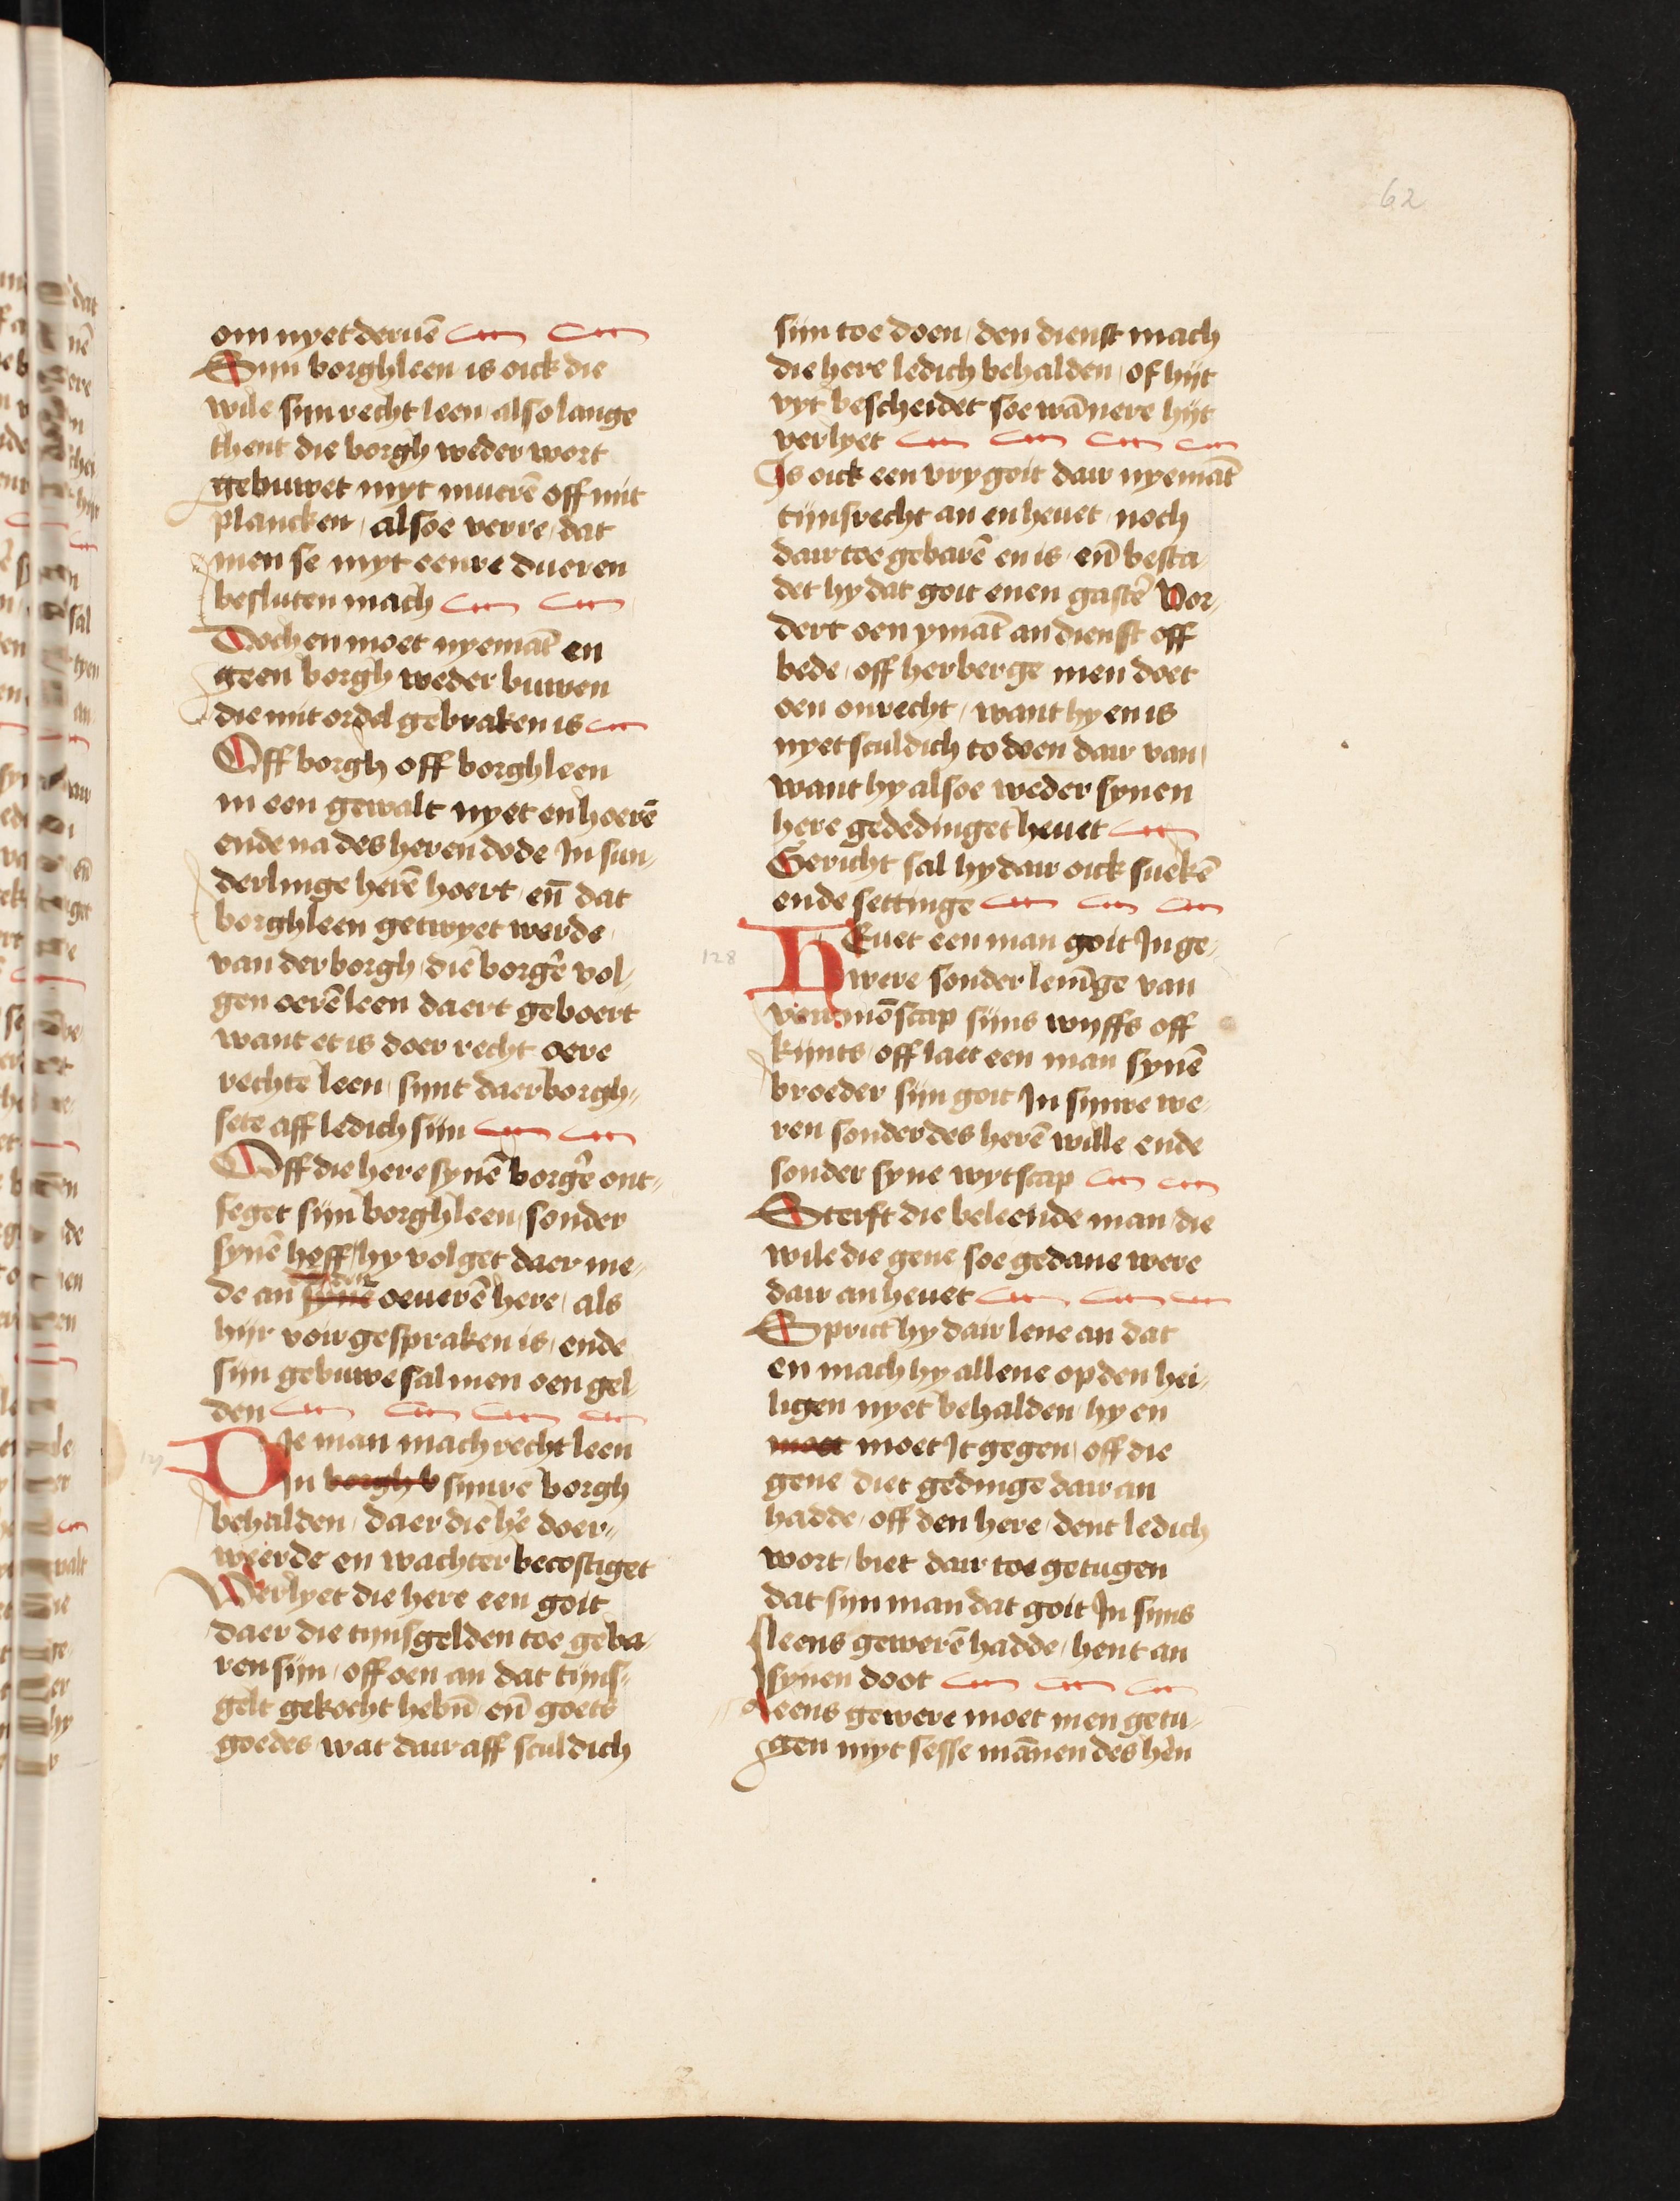 62
om nyet deruē
Sijn borghleen is oick die
wile sijn recht leen also lange
thent die borgh weder wort
gebuwet myt muerē off mit
plancken / alsoe verre / dat
men se myt eenre dueren
besluten mach
Doch en moet nyemāt en
geen borgh weder buwen
die mit ordel gebraken is
Off borgh off borghleen
in een gewalt nyet en hoerē
ende na des heren dode In sun⸗
derlinge herē hoert / eñ dat
borghleen getwyet werde
van der borgh / die borgē vol⸗
gen oerē leen daert geboert
want et is doer recht oere
rechte leen / sijnt daer borgh⸗
sete aff ledich sijn
Off die here synē borgē ont⸗
seget sijn borghleen / sonder
synē hoff / hy volget daer me⸗
de an synē den oeuerē here / als
hijr voir gespraken is / ende
sijn gebuwe sal men oen gel⸗
den
127
DIe man mach recht leen
In borgh b sijnre borgh
behalden / daer die hē doer⸗
weerde en wachter becostiget
Verlyet die here een goit
daer die tijnsgelden toe geba⸗
ren sijn / off oen an dat tijns⸗
gelt gekocht hebñ eñ goets
goedes wat dair aff sculdich
sijn toe doen / den dienst mach
die here ledich behalden / of hijt
vyt bescheidet soe wānere hijt
verlyet
Is oick een vry goit dair nyemāt
tijnsrecht an en heuet / noch
dair toe gebarē en is / eñ besta⸗
det hy dat goit enen gastē Vor⸗
dert oen ymāt an dienst off
bede / off herberge men doet
oen onrecht / want hy en is
nyet sculdich to doen dair van /
want hy alsoe weder synen
here gededinget heuet
Gericht sal hy dair oick suekē
ende settinge
128
HEuet een man goit In ge⸗
were sonder lenīge van
voirmōscap sijns wyffs off
kijnts / off laet een man synē
broeder sijn goit In sijnre we⸗
ren sonder des herē wille ende
sonder syne wytscap
Sterft die beleende man / die
wile die gene soe gedane were
dair an heuet
Sprict hy dair lene an dat
en mach hy allene op den hei⸗
ligen nyet behalden / hy en
moet moet It gegen / off die
gene diet gedinge dair an
hadde / off den here / dent ledich
wort / biet dair toe getugen
dat sijn man dat goit In sijns
leens gewerē hadde / hent an
synen doot
Leens gewere moet men getu⸗
gen myt sesse māñen des hēn